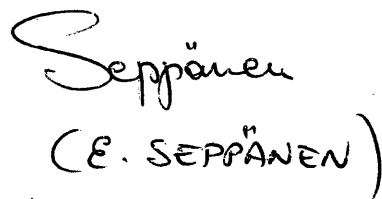 Seppänen
(E. SEPPÄNEN)